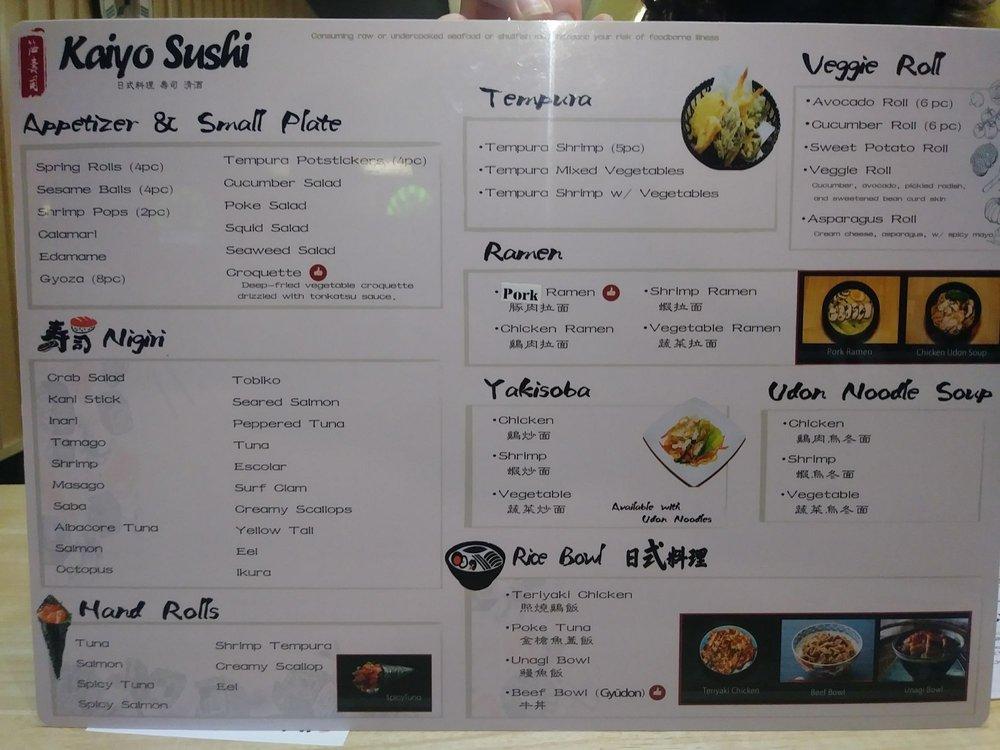 Kaiyo Sushi
日式料理 壽司 清酒
Consuming raw or undercooked seafood or shellfish may increase your risk of foodborne illness
Appetizer & Small Plate
Spring Rolls (4pc)
Sesame Balls (4pc)
Shrimp Pops (2pc)
Calamari
Edamame
Gyoza (8pc)
Tempura Potstickers (4pc)
Cucumber Salad
Poke Salad
Squid Salad
Seaweed Salad
Croquette
Deep-fried vegetable croquette
drizzled with tonkatsu sauce.
寿司 Nigiri
Crab Salad
Kani Stick
Inari
Tamago
Shrimp
Masago
Saba
Albacore Tuna
Salmon
Octopus
Tobiko
Seared Salmon
Peppered Tuna
Tuna
Escolar
Surf Clam
Creamy Scallops
Yellow Tail
Eel
Ikura
Hand Rolls
Tuna
Salmon
Spicy Tuna
Spicy Salmon
Shrimp Tempura
Creamy Scallop
Eel
SpicyTuna
Tempura
•Tempura Shrimp (5pc)
•Tempura Mixed Vegetables
•Tempura Shrimp w/ Vegetables
Veggie Roll
•Avocado Roll (6 pc)
•Cucumber Roll (6 pc)
•Sweet Potato Roll
•Veggie Roll
Cucumber, avocado, pickled radish,
and sweetened bean curd skin
•Asparagus Roll
Cream cheese, asparagus, w/ spicy mayo
Ramen
•Pork Ramen
豚肉拉面
•Chicken Ramen
鷄肉拉面
•Shrimp Ramen
蝦拉面
•Vegetable Ramen
蔬菜拉面
Pork Ramen
Chicken Udon Soup
Yakisoba
•Chicken
鷄炒面
•Shrimp
蝦炒面
•Vegetable
蔬菜炒面
Available with
Udon Noodles
Udon Noodle Soup
•Chicken
鷄肉烏冬面
•Shrimp
蝦烏冬面
•Vegetable
蔬菜烏冬面
Rice Bowl 日式料理
•Teriyaki Chicken
照燒鷄飯
•Poke Tuna
金槍魚蓋飯
•Unagi Bowl
鰻魚飯
•Beef Bowl (Gyūdon)
牛丼
Teriyaki Chicken
Beef Bowl
Unagi Bowl